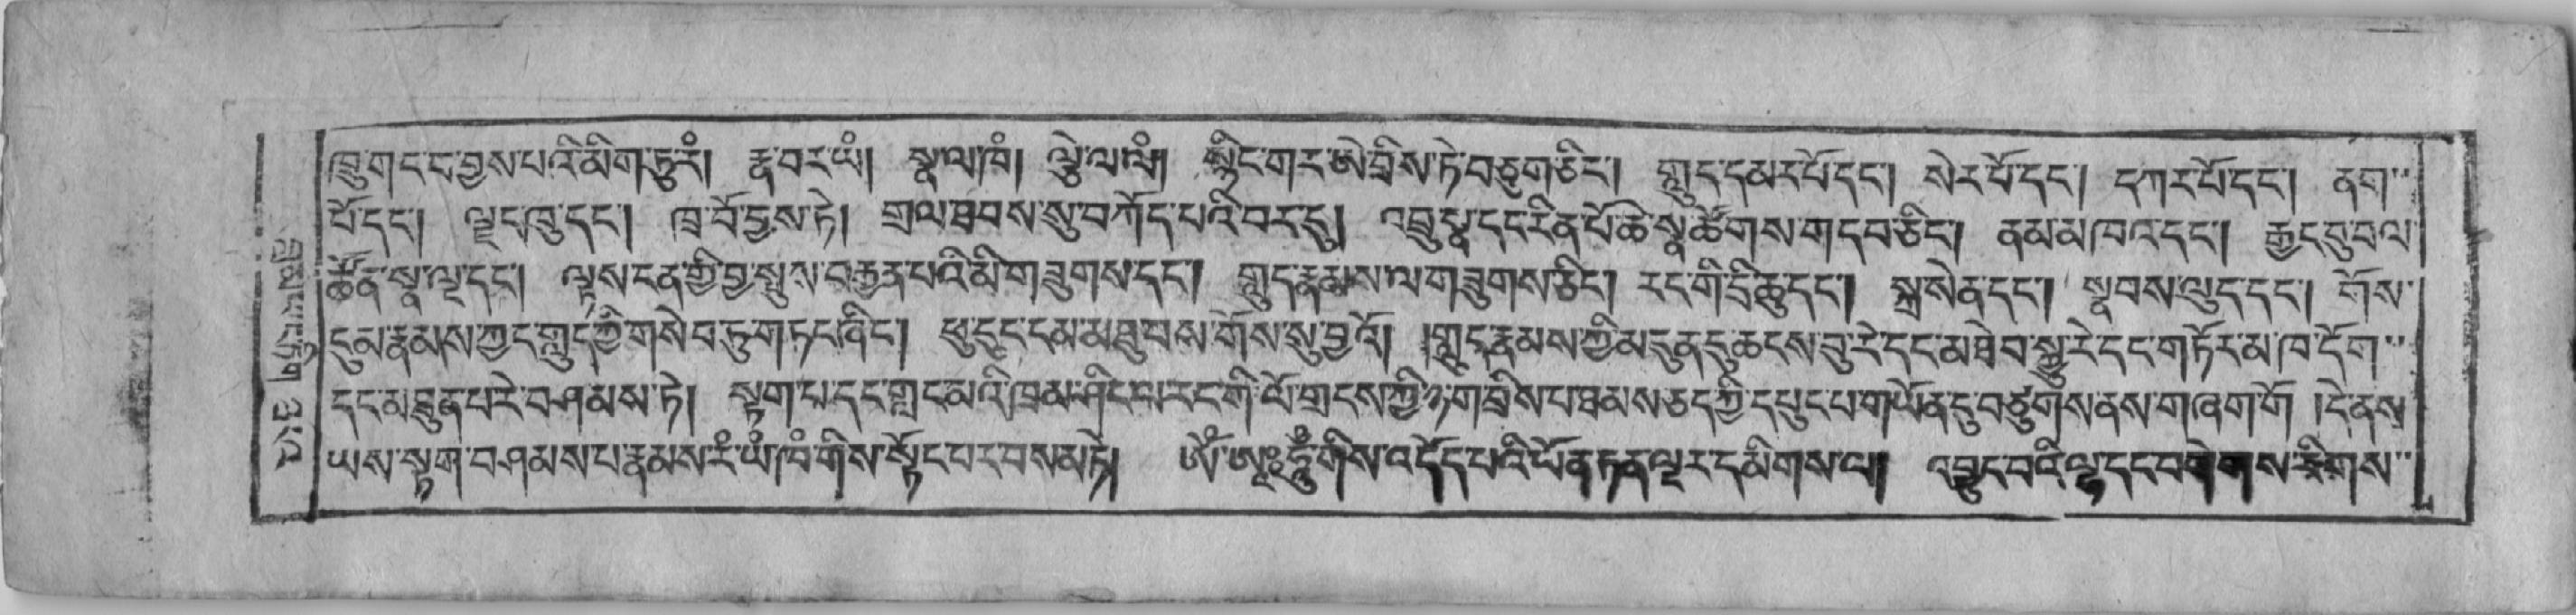 ཁྲུ་གང་ང་བྱས་པའི་མིག་ཏུ་རཾ། རྣ་བར་ཡཾ། སྣ་ལ་ཁཾ། ལྕེ་ལ་ལཾ། སྙིང་གར་ཨེ་བྲིས་ཏེ་བཅུག་ཅིང་། གླུད་དམར་པོ་དང་། སེར་པོ་དང་། དཀར་པོ་དང་། ནག་
པོ་དང་། ལྗང་ཁུ་དང་། ཁྲ་བོ་བྱས་ཏེ། གྲལ་ཐབས་སུ་བཀོད་པའི་བར་དུ། འབྲུ་སྣ་དང་རིན་པོ་ཆེ་སྣ་ཚོགས་གདབ་ཅིང་། ནམ་མཁའ་དང་། རྒྱང་བུ་བལ་
ཚོན་སྣ་ལྔ་དང་། ལྟས་ངན་གྱི་བྱ་སྤུས་བརྒྱན་པའི་མིག་ཟུགས་དང་། གླུད་རྣམས་ལ་གཟུགས་ཅིང་། རང་གི་དྲི་ཆུ་དང་། སྐྲ་སེན་དང་། སྣབས་ལུད་དང་། གོས་
དུམ་རྣམས་ཀྱང་གླུད་ཀྱི་གསེབ་ཏུ་གཏང་ཞིང་། ཕུ་དུང་དམ་མཐུབས་གོས་སུ་བྱའོ། །གླུད་རྣམས་ཀྱི་མདུན་དུ་ཆངས་བུ་རེ་དང་མཐེབ་སྐྱུ་རེ་དང་གཏོར་མ་ཁ་དོག་
དང་མཐུན་པ་རེ་བཤམས་ཏེ། སྟག་མ་དང་གླང་མའི་ཁྲམ་ཤིང་ལ་རང་གི་ལོ་གྲངས་ཀྱི་ཉ་ག་བྲིས་པ་ཐམས་ཅད་ཀྱི་དཔུང་པ་གཡོན་དུ་བཙུགས་ནས་གཞག་གོ །དེ་ནས་
ཡས་སྟག་བཤམས་པ་རྣམས་རཾ་ཡཾ་ཁཾ་གིས་སྟོང་པར་བསམ་ཏེ། ཨོཾ་ཨཱཿཧཱུྃ་གིས་འདོད་པའི་ཡོན་ཏན་ལྔར་དམིགས་ལ། འབྱུང་བའི་ལྷ་དང་བགེགས་རིགས་